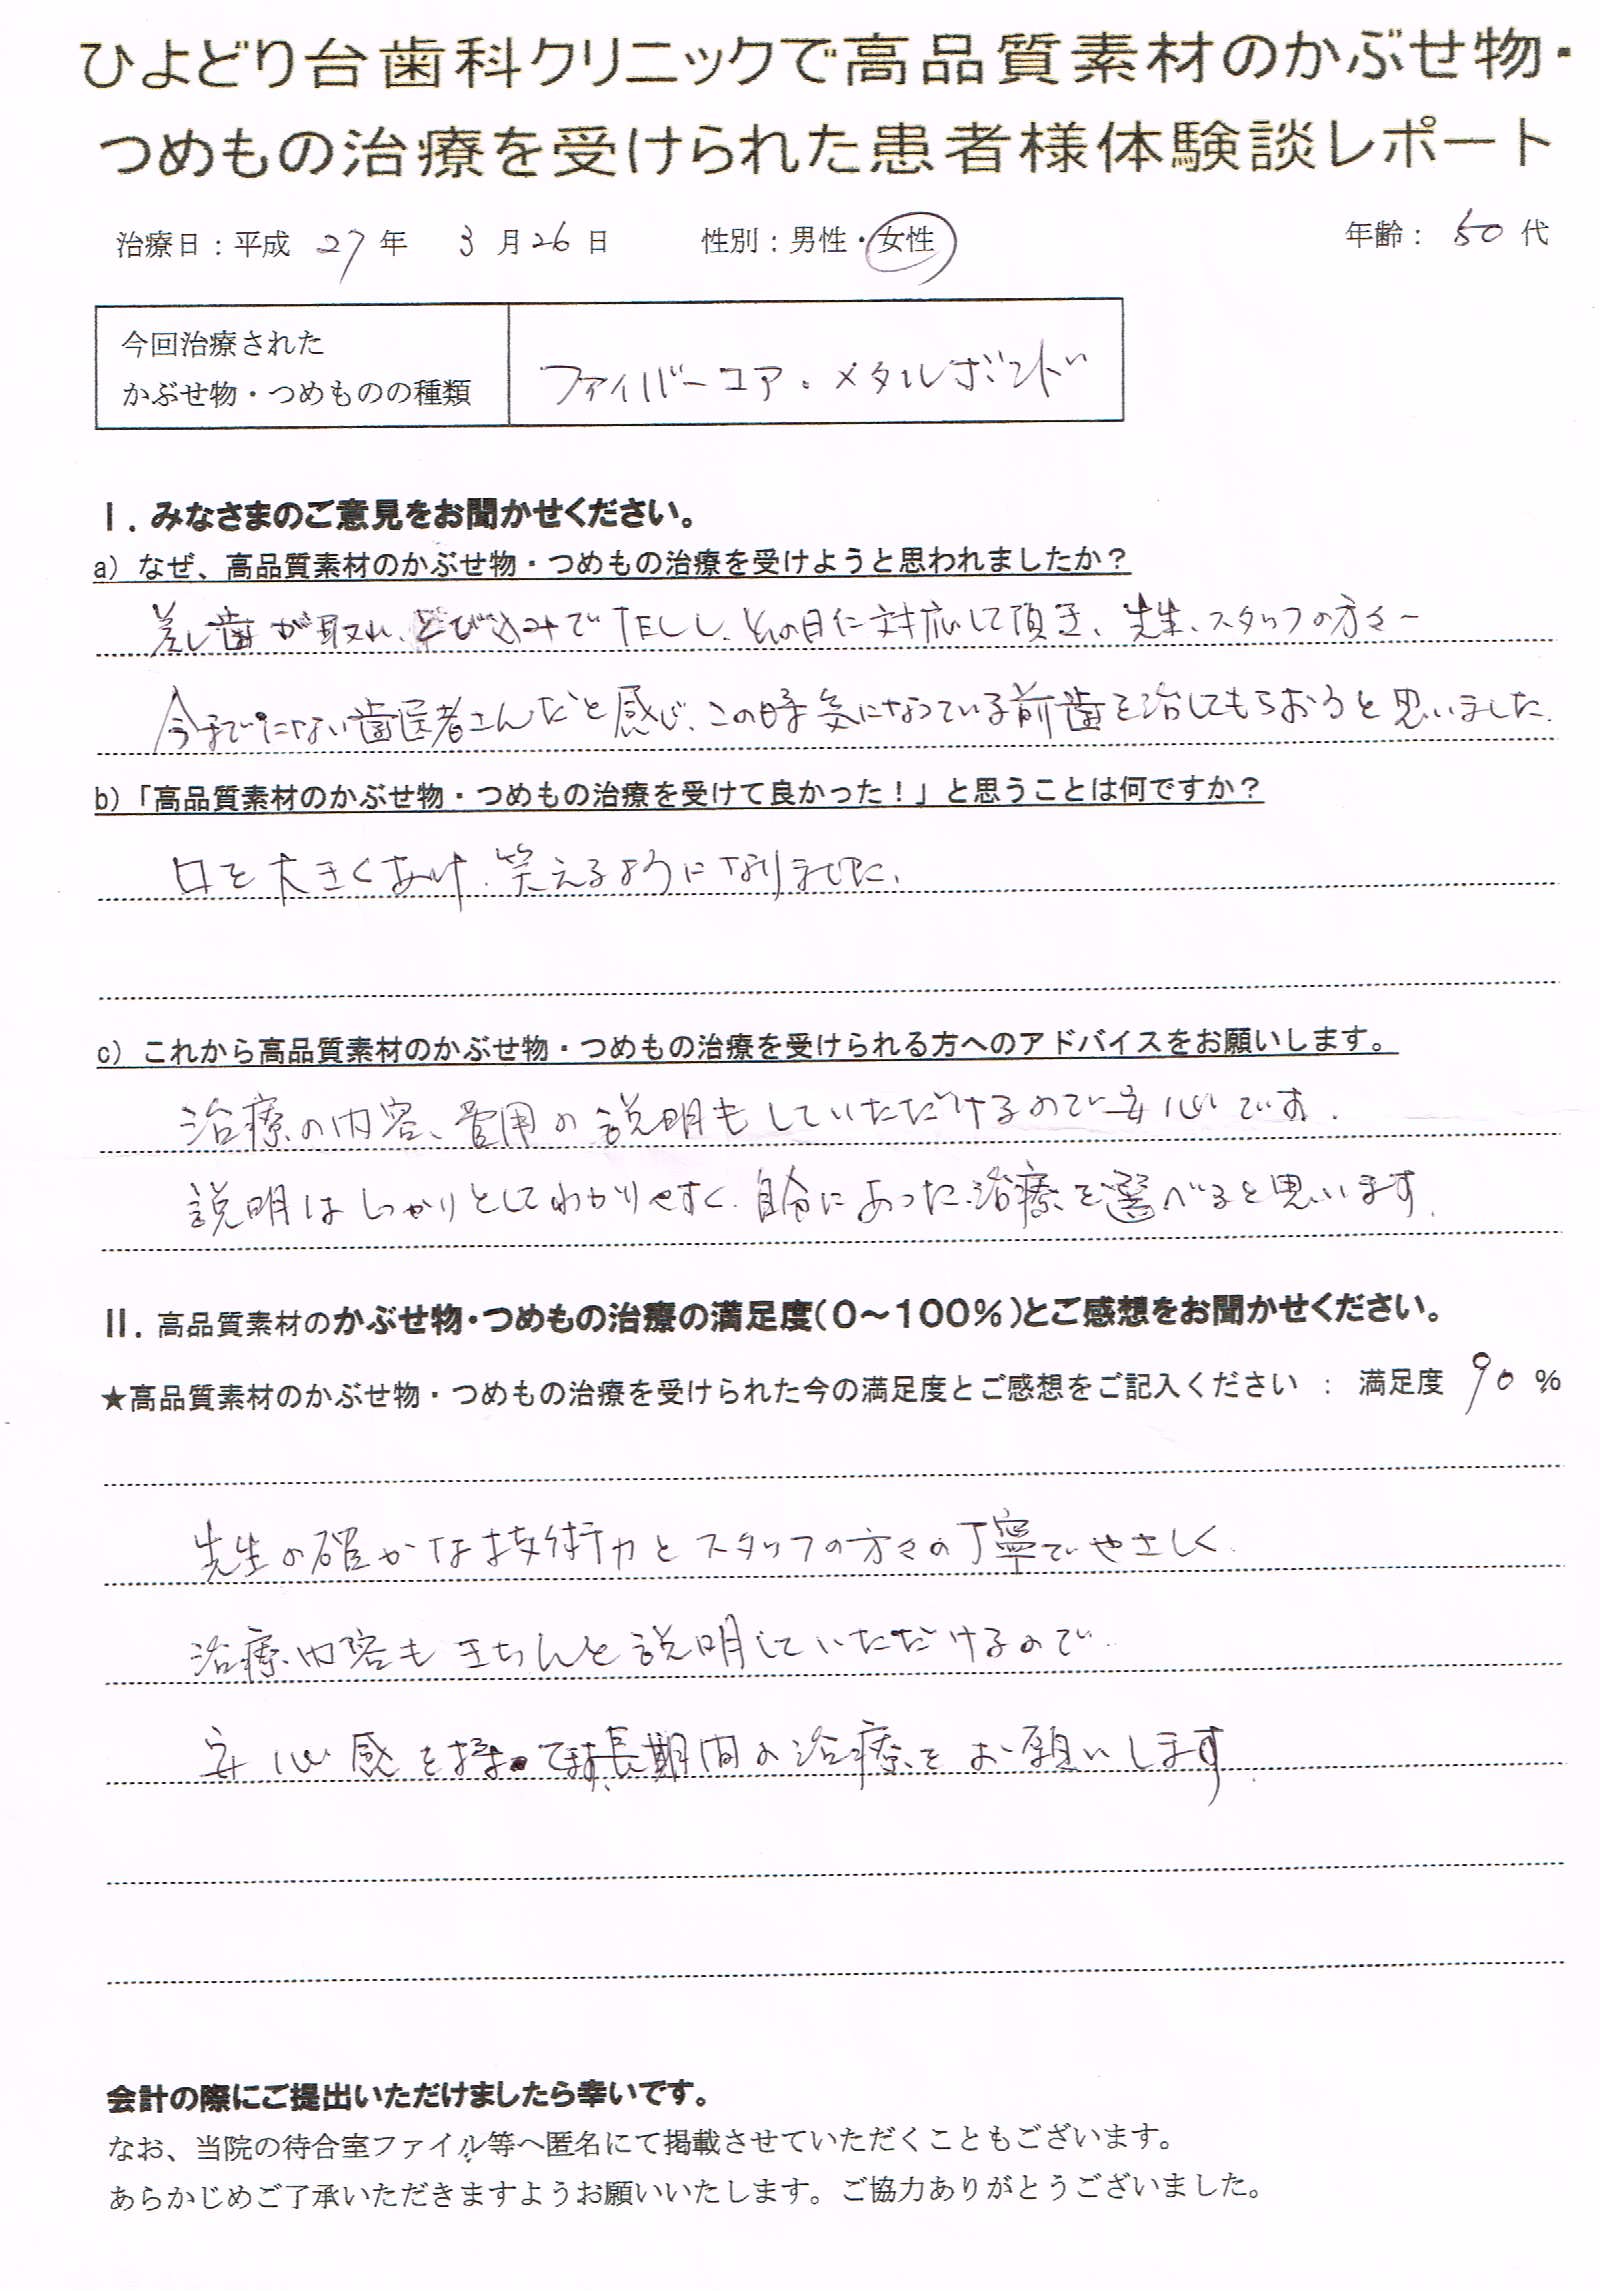 ひよどり台歯科クリニックで高品質素材のかぶせ物・
つめもの治療を受けられた患者様体験談レポート
治療日：平成 27 年 3 月 26 日 性別：男性・女性 年齢： 50 代
今回治療された
かぶせ物・つめものの種類
ファイバーコア・メタルボンド
Ⅰ．みなさまのご意見をお聞かせください。
a）なぜ、高品質素材のかぶせ物・つめもの治療を受けようと思われましたか？
差し歯が取れ、とび込みでTELし、その日に対応して頂き、先生、スタッフの方々
今までにない歯医者さんだと感じ、この時気になっている前歯を治してもらおうと思いました.
b）「高品質素材のかぶせ物・つめもの治療を受けて良かった！」と思うことは何ですか？
口を大きくあけ、笑えるようになりました、
c）これから高品質素材のかぶせ物・つめもの治療を受けられる方へのアドバイスをお願いします。
治療の内容、費用の説明もしていただけるので安心です.
説明はしっかりとしてわかりやすく、自分にあった治療を選べると思います.
Ⅱ．高品質素材のかぶせ物・つめもの治療の満足度（０～１００％）とご感想をお聞かせください。
★高品質素材のかぶせ物・つめもの治療を受けられた今の満足度とご感想をご記入ください ： 満足度 90 ％
先生の確かな技術力とスタッフの方々の丁寧でやさしく
治療内容もきちんと説明していただけるので、
安心感を持って長期間の治療をお願いします.
会計の際にご提出いただけましたら幸いです。
なお、当院の待合室ファイル等へ匿名にて掲載させていただくこともございます。
あらかじめご了承いただきますようお願いいたします。ご協力ありがとうございました。